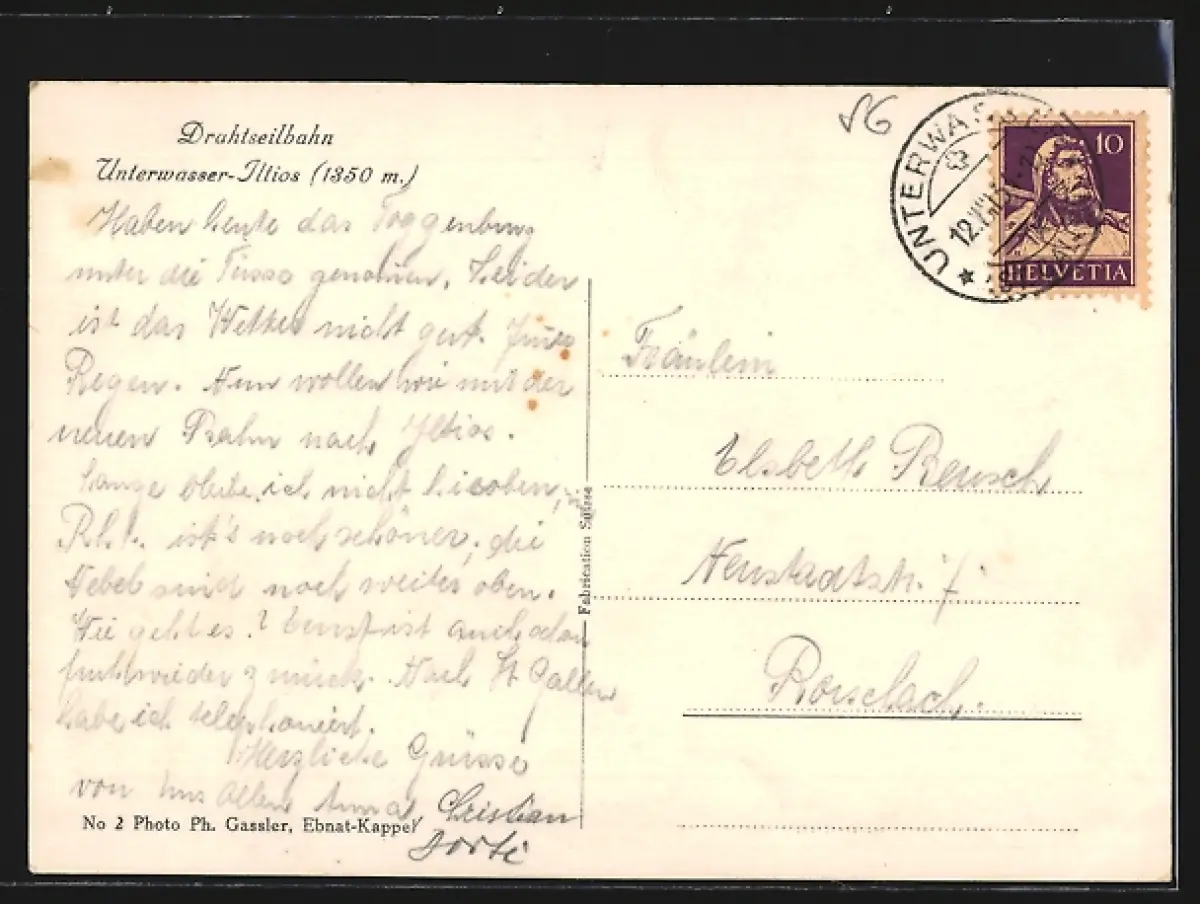 Drahtseilbahn
Unterwasser-Iltios (1350 m.)
Haben heute das Toggenburg
unter die Füsse genommen. Leider
ist das Wetter nicht gut.
Regen. Nun wollen wir mit der
neuen Bahn nach Iltios.
Lange bleibe ich nicht hier oben,
ist's noch schöner, die
Nebel sind noch weiter oben.
Wie geht es? Ernst ist auch
früh wieder zurück. Nach St Gallen
habe ich telephoniert.
Herzliche Grüsse
von uns Allen Anna Christian
Dorti
No 2 Photo Ph. Gassler, Ebnat-Kappel
Fabrication Suisse
86
UNTERWASSER
12.
10
HELVETIA
Fräulein
Elsbeth Reusch
Neustadtstr. 7
Rorschach.